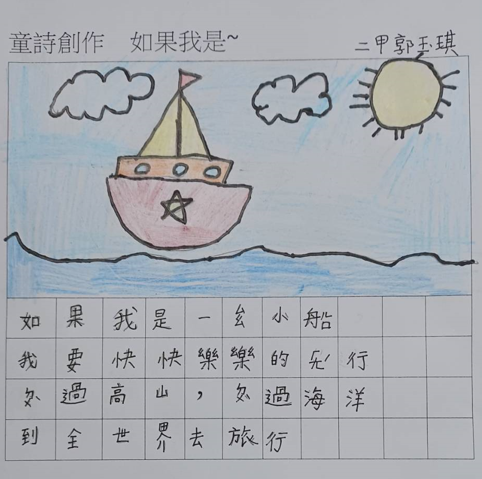 童詩創作 如果我是~
二甲郭玉琪
如果我是一小船
我要快快樂樂的行
過高山，過海洋
到全世界去旅行